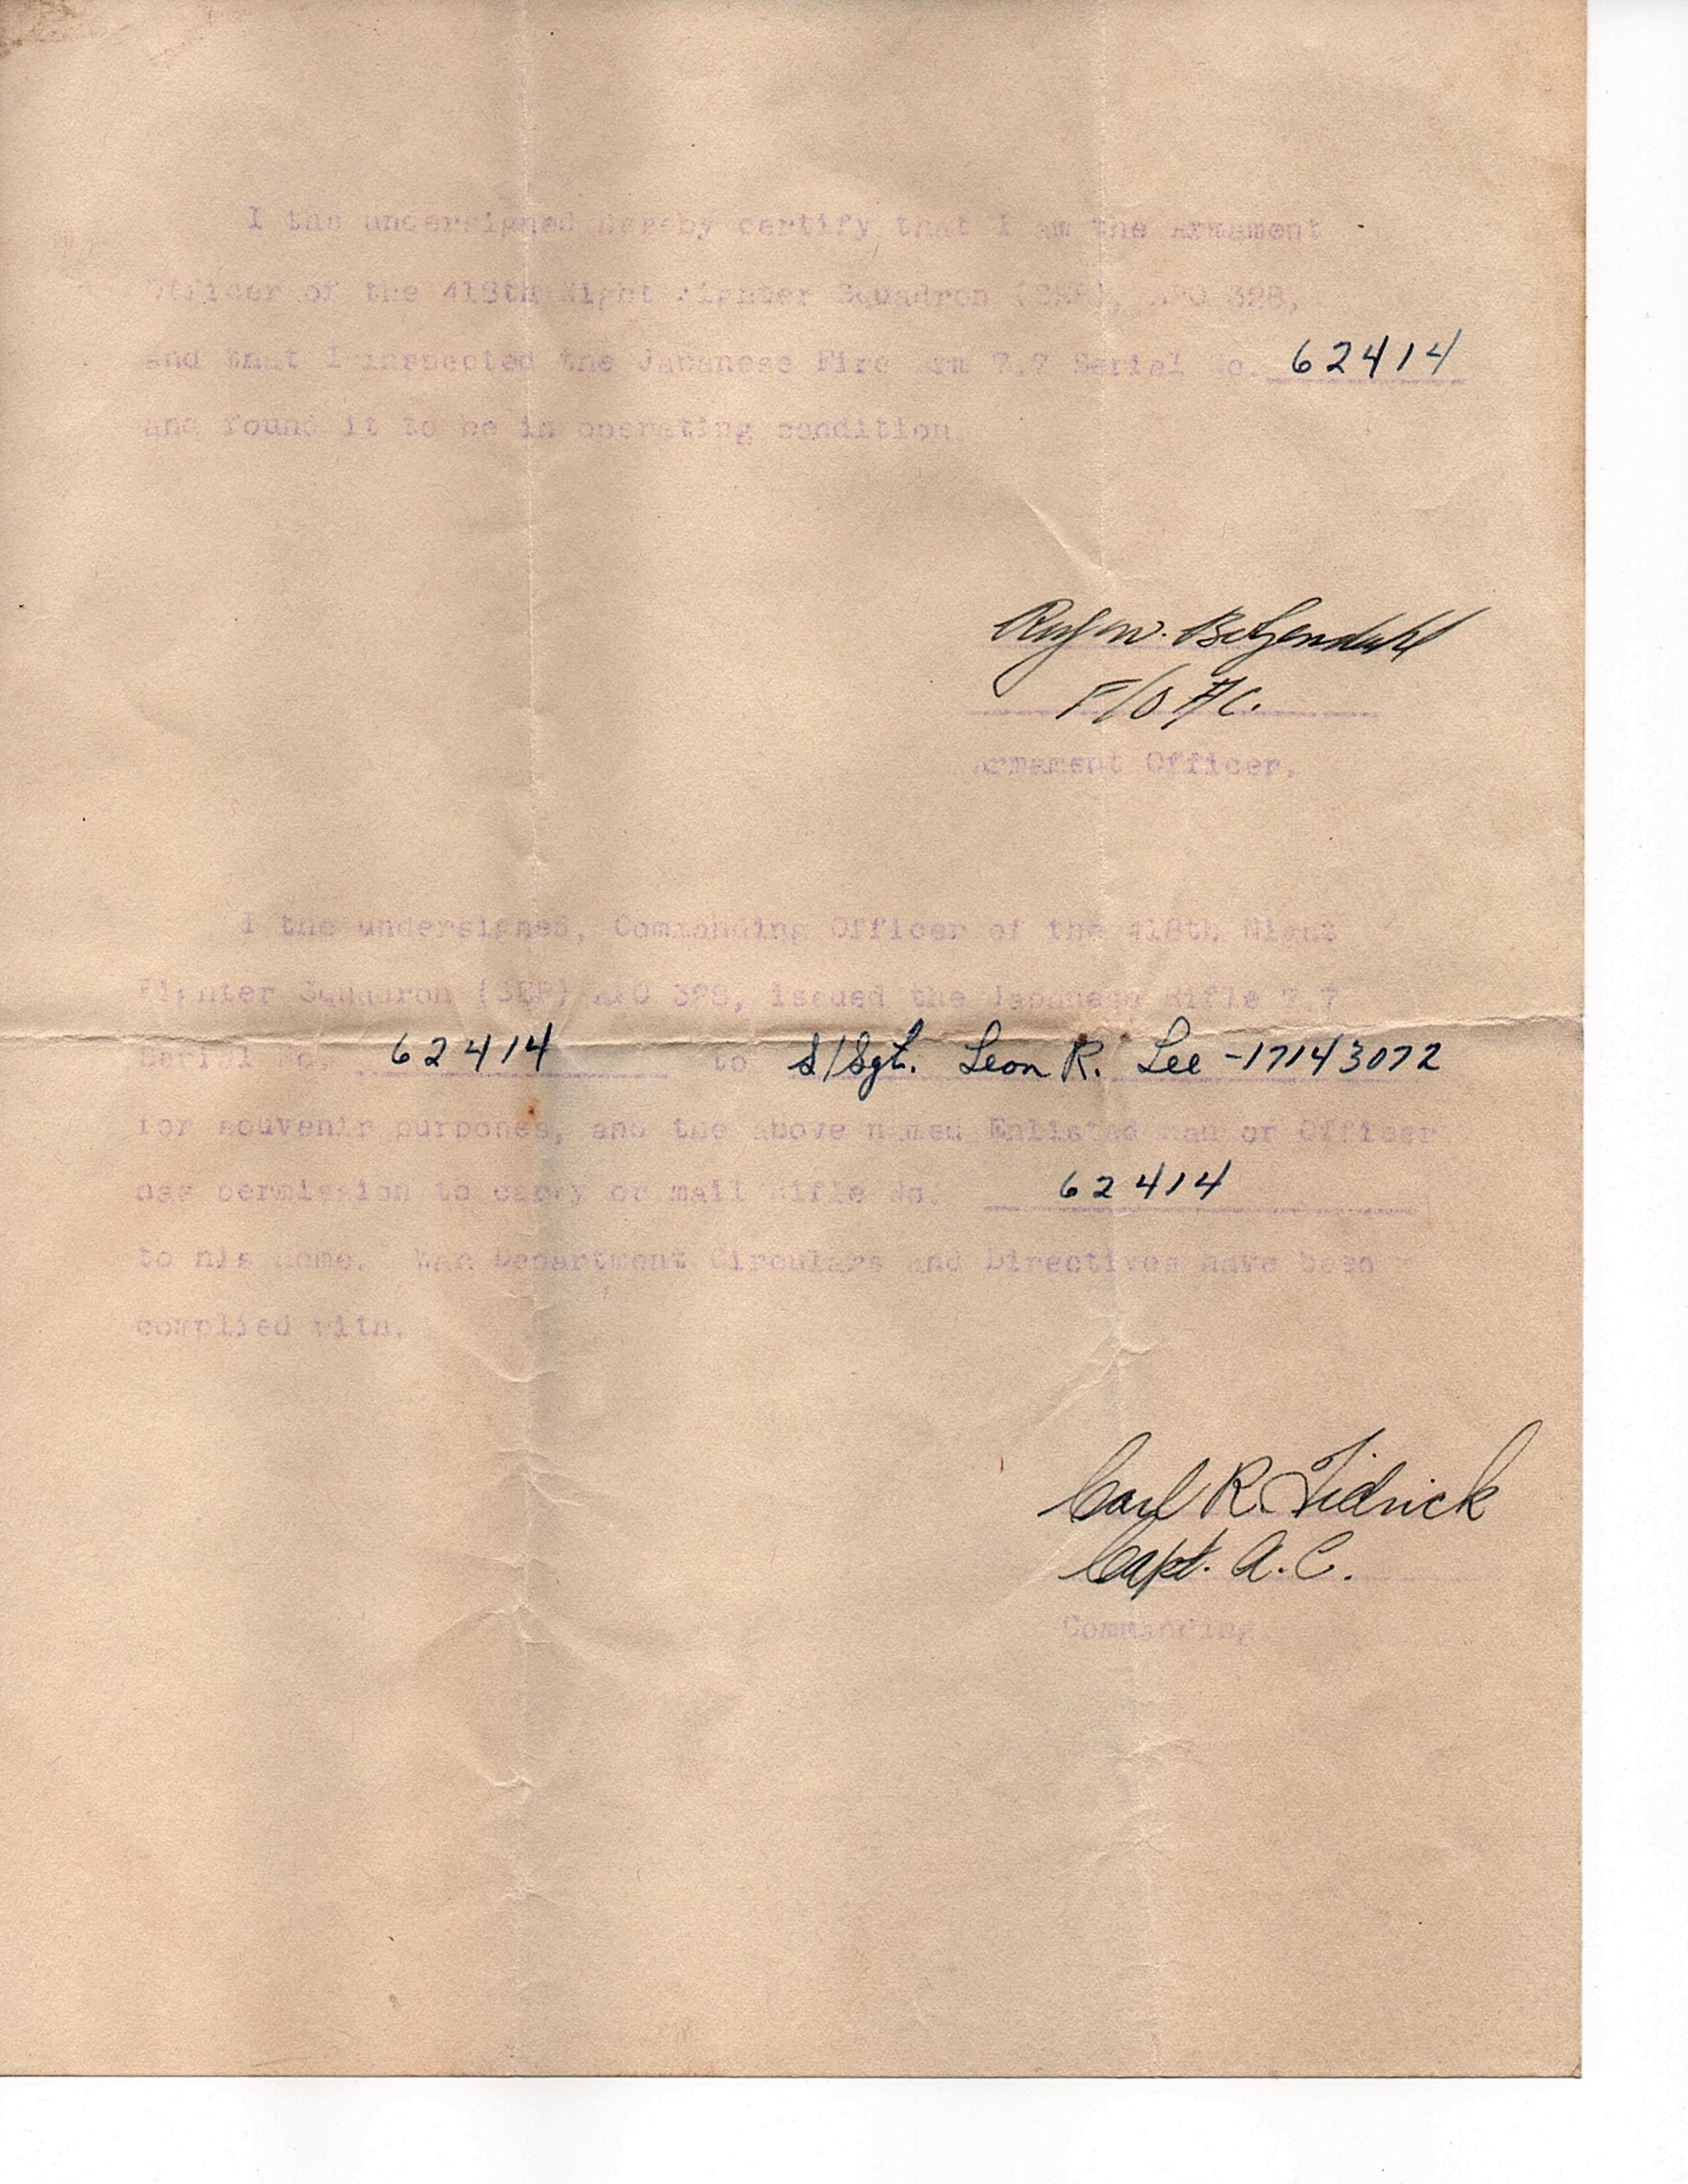 I the undersigned hereby certify that I am the Armament
Officer of the 418th Night Fighter Squadron (SEP), APO 328,
and that I inspected the Japanese Fire Arm 7.7 Serial No. 62414
and found it to be in operating condition.
W.
F/O A/C.
Armament Officer.
I the undersigned, Commanding Officer of the 418th Night
Fighter Squadron (SEP) APO 328, issued the Japanese Rifle 7.7
Serial No. 62414 to S/Sgt. Leon R. Lee -17143072
for souvenir purposes, and the above named Enlisted Man or Officer
has permission to carry or mail Rifle No. 62414
to his home. War Department Circulars and Directives have been
complied with.
Carl R. Tidrick
Capt. A.C.
Commanding